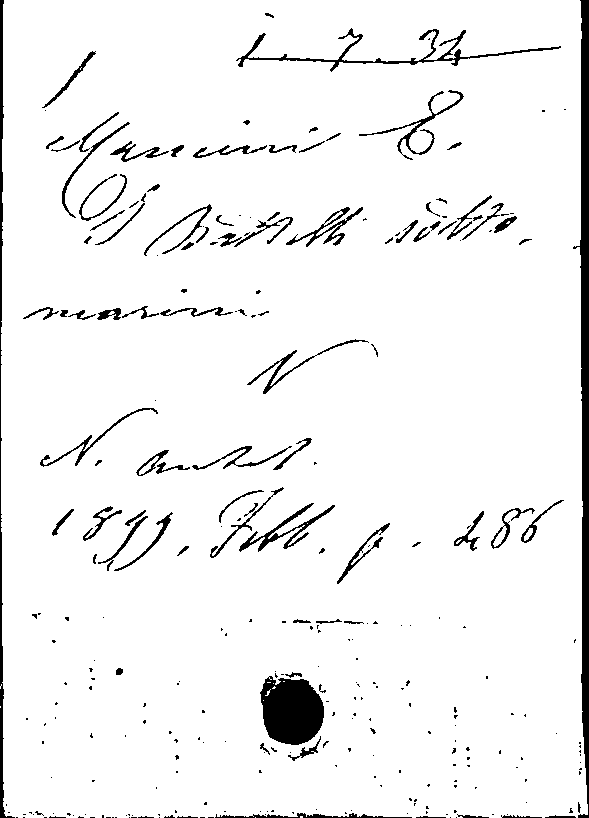 1.7.34
Mancini E.
I Battelli sotto-
marini
N
N. antol.
1899. Febb. p. 486